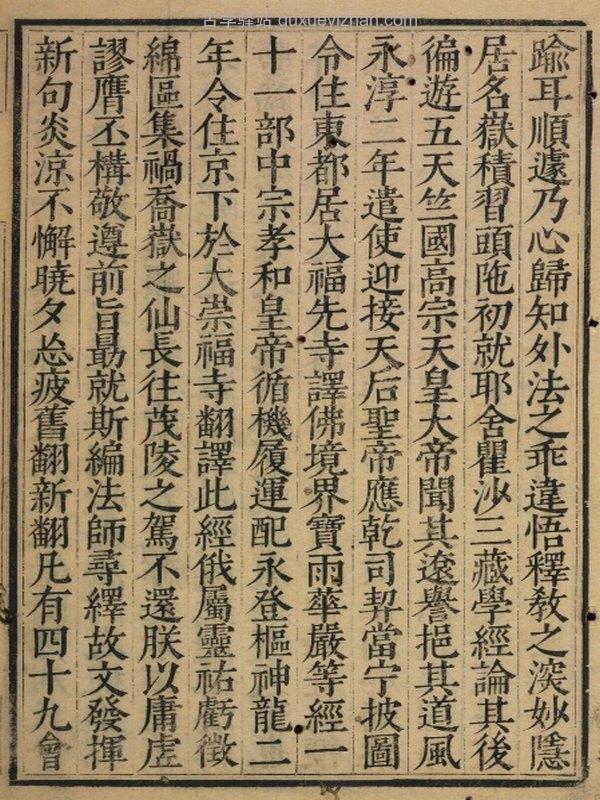 古學驛站 guxueyizhan.com
踰耳順遽乃心歸知外法之乖違悟釋教之深妙隱
居名嶽積習頭陁初就耶舍瞿沙三藏學經論其後
徧遊五天竺國高宗天皇大帝聞其遠譽挹其道風
永淳二年遣使迎接天后聖帝應乾司契當宁披圖
令住東都居大福先寺譯佛境界寶雨華嚴等經一
十一部中宗孝和皇帝循機履運配永登樞神龍二
年令住京下於大崇福寺翻譯此經俄屬靈祐虧徵
綿區集禍喬嶽之仙長往茂陵之駕不還朕以庸虛
謬膺丕構敬遵前旨勗就斯編法師尋繹故文發揮
新句炎涼不懈曉夕忘疲舊翻新翻凡有四十九會